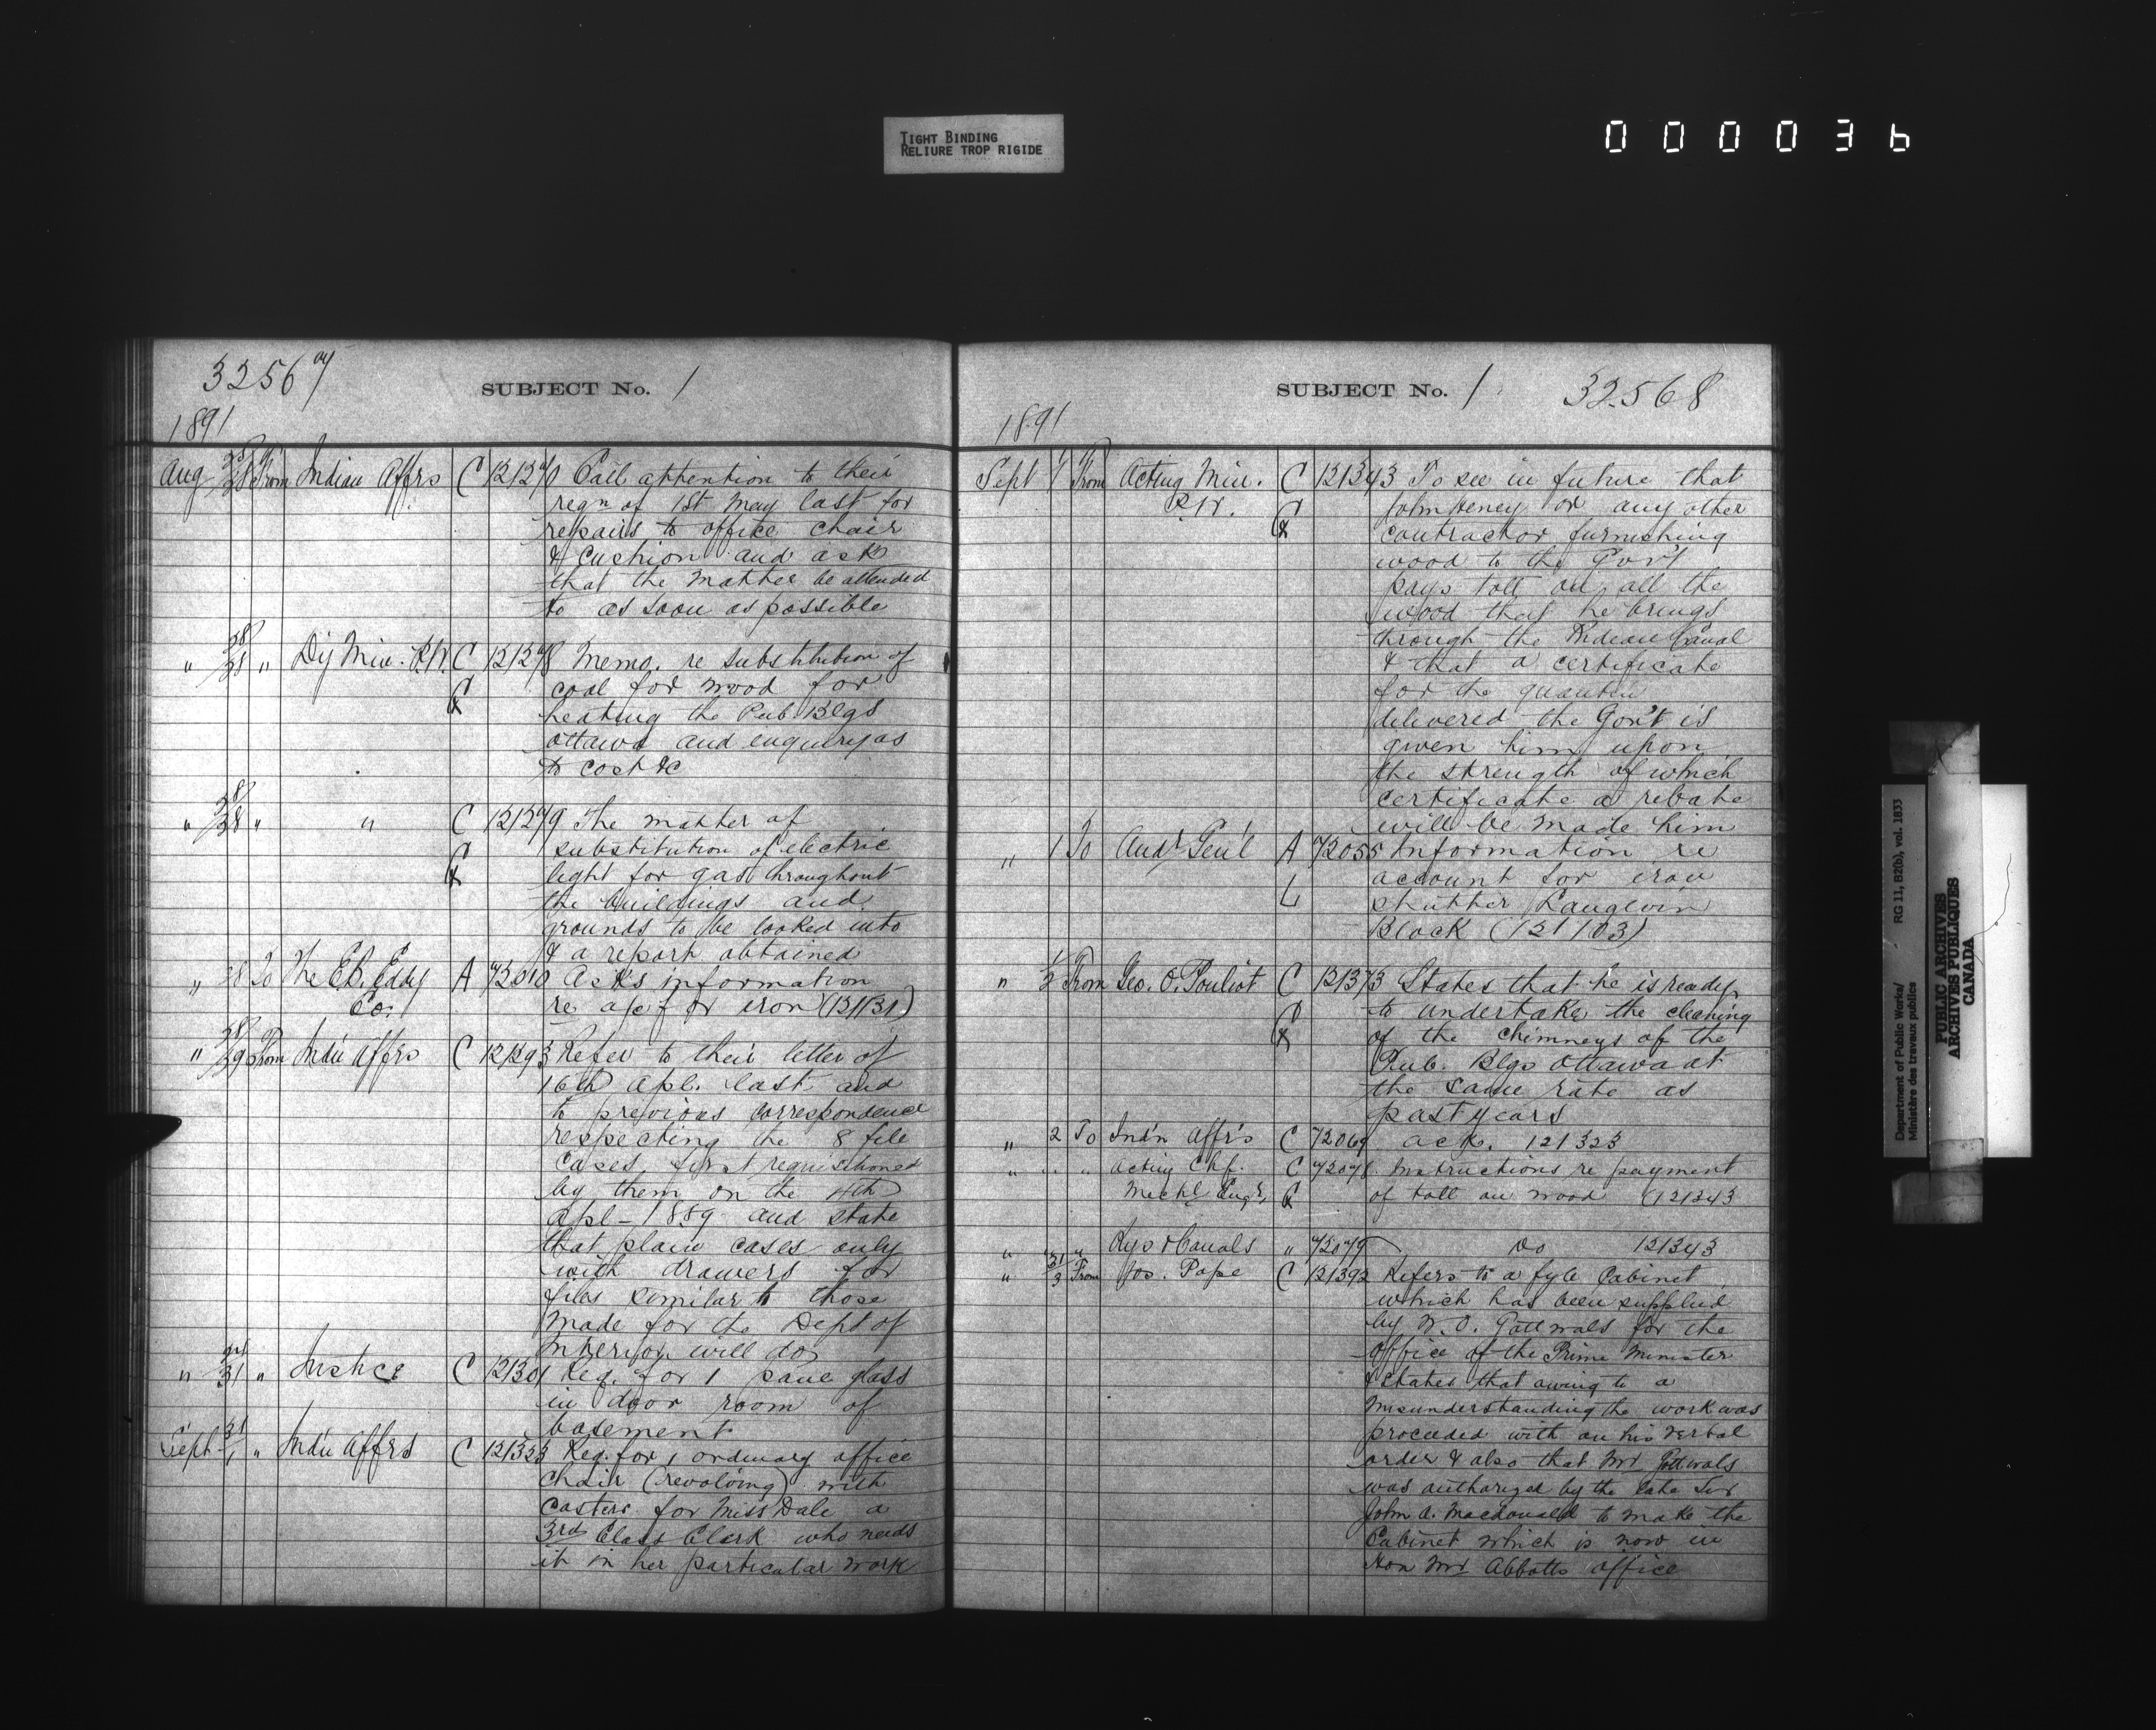 TIGHT BINDING
RELIURE TROP RIGIDE
000036
32567
SUBJECT No. 1
1891
Aug 25/28 From Indian Affrs C 121270 Call attention to their
reqn of 1st May last for
repairs to office chair
& cushion and ask
that the matter be attended
to as soon as possible
" 28/28 " Dy Min. P.W. C 121278 Memo. re substitution of
coal for wood for
heating the Pub. Blgs
Ottawa and enquiry as
to cost &c
" 28/28 " " C 121279 The matter of
substitution of electric
light for gas throughout
the buildings and
grounds to be looked into
& a report obtained
" 28 To The E.B. Eddy A 72010 Asks information
Co. re a/c for iron (121131)
" 28/29 From Indn Affrs C 121293 Refer to their letter of
16th Apl. last and
to previous correspondence
respecting the 8 file
cases, first requisitioned
by them on the 4th
Apl - 1889 and state
that plain cases only
with drawers for
files similar to those
made for the Dept of
Interior will do
" 31 " Justice C 121301 Req. for 1 pane glass
in door room of
basement
Sept 31/1 " Indn Affrs C 121323 Req. for 1 ordinary office
chair (revolving) with
casters for Miss Dale a
3rd Class Clerk who needs
it in her particular work
SUBJECT No. 1
32568
1891
Sept 1 From Acting Min. C 121343 To see in future that
P.W. John Heney or any other
contractor furnishing
wood to the Gov't
pays toll on all the
wood that he brings
through the Rideau Canal
& that a certificate
for the quantity
delivered the Gov't is
given him upon
the strength of which
certificate a rebate
will be made him
" 1 To Audr Gen'l A 72055 Information re
account for iron
L shutter Langevin
Block (121103)
" 1/2 From Geo. O. Pouliot C 121373 States that he is ready
to undertake the cleaning
of the chimneys of the
Pub. Blgs Ottawa at
the same rate as
past years
" 2 To Ind'n Aff'rs C 72069 ack. 121323
" " " Acting Chf. C 72078 Instructions re payment
Mechl Engr, of toll on wood (121343
" " " Rys & Canals " 72079 Do 121343
" 31/3 From Jos. Pope C 121392 Refers to a fyle Cabinet
which has been supplied
by W.O. Gottwals for the
Office of the Prime Minister
& states that owing to a
misunderstanding the work was
proceeded with on his verbal
order & also that Mr Gottwals
was authorized by the late Sir
John A. Macdonald to make the
Cabinet which is now in
Hon Mr Abbotts office
Department of Public Works/ RG 11, B2(b), vol. 1833
Ministère des travaux publics
PUBLIC ARCHIVES
ARCHIVES PUBLIQUES
CANADA